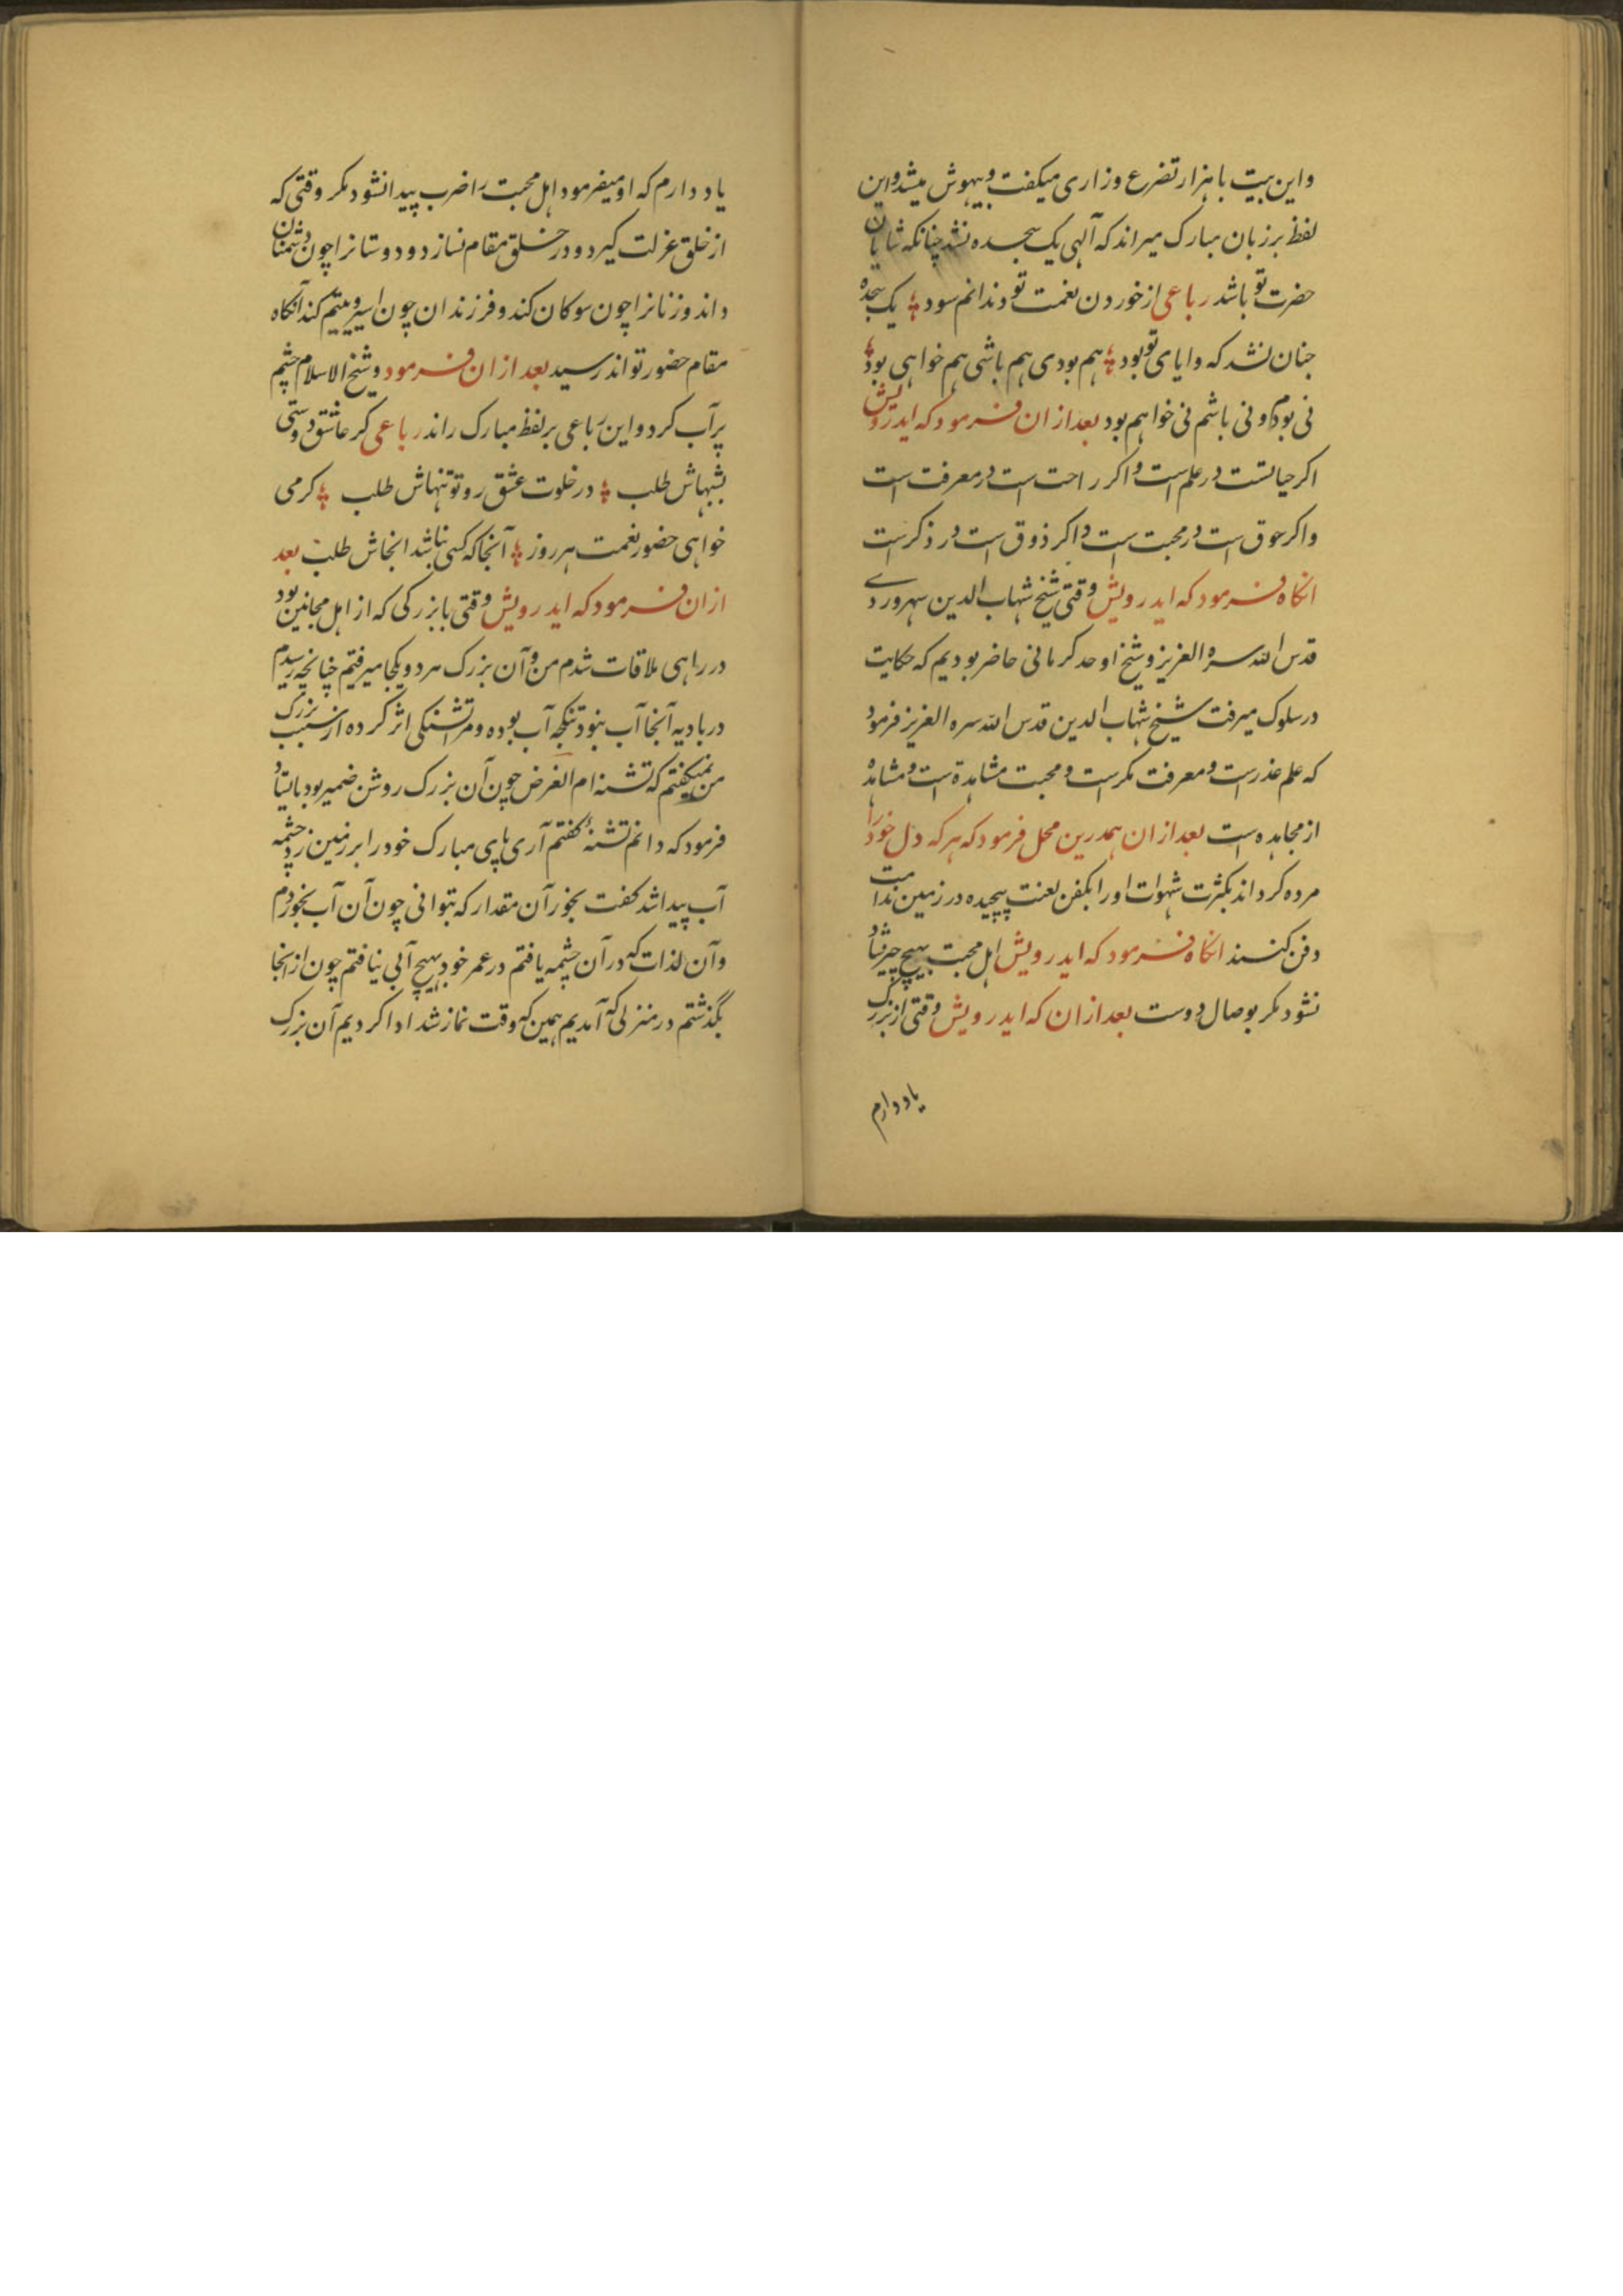 و این بیت با هزار تضرع و زاری میکفت و بیهوش میشد و این
لفظ بر زبان مبارک میراند که آلهی یک سجده نشد چنانکه شایان
حضرت تو باشد رباعی از خوردن نعمت تو دندانم سود یک سجده
چنان نشد که وایای تو بود هم بودی هم باشی هم خواهی بود
نی بودم و نی باشم نی خواهم بود بعد ازان فرمود که ایدرویش
اکر حیاتست در علم است و اکر راحت است در معرفت است
و اکر شوق است در محبت است و اکر ذوق است در ذکر است
انکاه فرمود که ایدرویش وقتی شیخ شهاب الدین سهروردے
قدس الله سره العزیز و شیخ اوحد کرمانی حاضر بودیم که حکایت
در سلوک میرفت شیخ شهاب الدین قدس الله سره العزیز فرمود
که علم عذر است و معرفت مکر است و محبت مشاهدة است و مشاهده
از مجاهده است بعد ازان همدرین محل فرمود که هر که دل خود را
مرده کرداند بکثرت شهوات او را بکفن لعنت پیچیده در زمین ندامت
دفن کنند انکاه فرمود که ایدرویش اهل محبت بهیچ چیز شاد
نشود مکر بوصال دوست بعد ازان که ایدرویش وقتی از بزرک
یاد دارم
یاد دارم که او میفرمود اهل محبت را ضرب پیدا نشود مکر وقتی که
از خلق عزلت کیرد و در خلق مقام نسازد و دوستانرا چون دشمنان
داند و زنانرا چون سوکان کند و فرزندان چون اسیر و یتیم کند آنکاه
مقام حضور تواند رسید بعد ازان فرمود و شیخ الاسلام چشم
پرآب کرد و این رباعی بر لفظ مبارک راند رباعی کر عاشق دوستی
بشبهاش طلب در خلوت عشق رو تو تنهاش طلب کر می
خواهی حضور نعمت هر روز آنجا که کسی نباشد انجاش طلب بعد
ازان فرمود که ایدرویش وقتی با بزرکی که از اهل مجانین بود
در راهی ملاقات شدم من و آن بزرک هر دو یکجا میرفتیم چنانچه رسیدم
در بادیه آنجا آب نبود تنکچه آب بوده و مرا تشنکی اثر کرده از سبب بزرک
من نمیکفتم که تشنه ام الغرض چون آن بزرک روشن ضمیر بود بایستاد
فرمود که دانم تشنهٔ کفتم آری پای مبارک خود را بر زمین زد چشمه
آب پیدا شد کفت بخور آن مقدار که بتوانی چون آن آب بخوردم
و آن لذات که در آن چشمه یافتم در عمر خود بهیچ آبی نیافتم چون از انجا
بگذشتم در منزلی که آمدیم همین که وقت نماز شد ادا کردیم آن بزرک